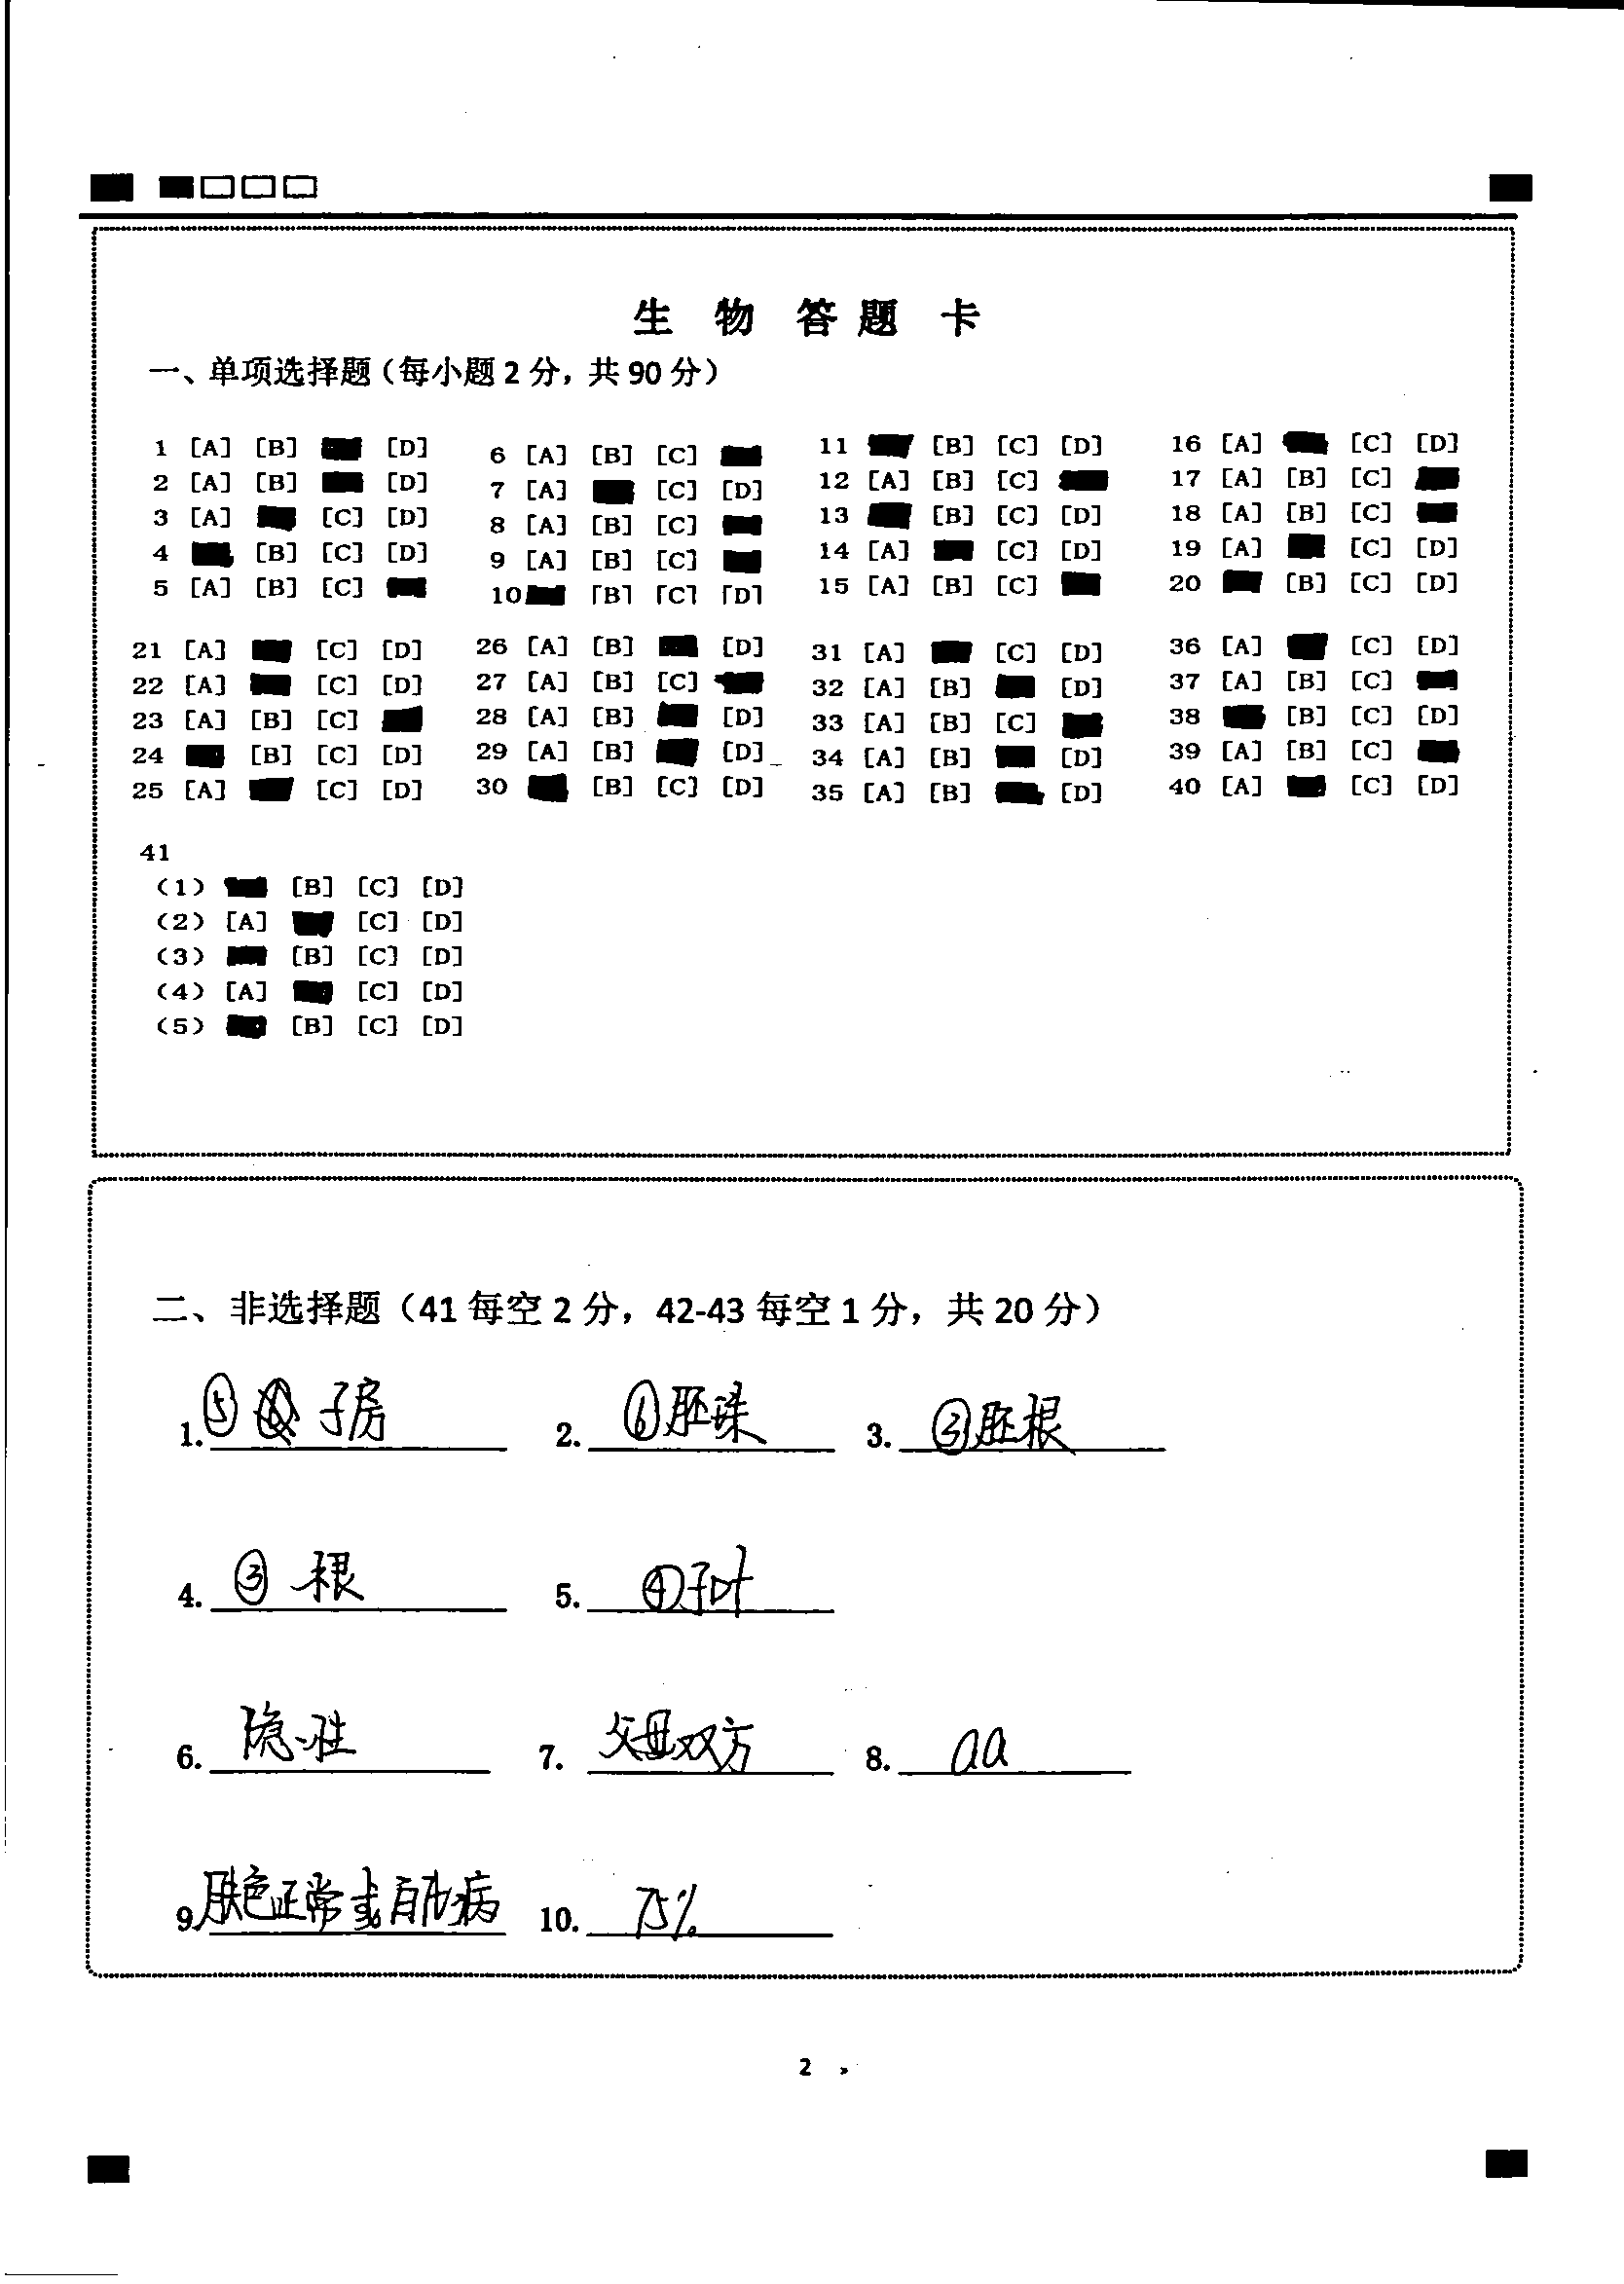 生 物 答 题 卡
一、单项选择题（每小题 2 分，共 90 分）
1 [A] [B] [D]
2 [A] [B] [D]
3 [A] [C] [D]
4 [B] [C] [D]
5 [A] [B] [C]
6 [A] [B] [C]
7 [A] [C] [D]
8 [A] [B] [C]
9 [A] [B] [C]
10 [B] [C] [D]
11 [B] [C] [D]
12 [A] [B] [C]
13 [B] [C] [D]
14 [A] [C] [D]
15 [A] [B] [C]
16 [A] [C] [D]
17 [A] [B] [C]
18 [A] [B] [C]
19 [A] [C] [D]
20 [B] [C] [D]
21 [A] [C] [D]
22 [A] [C] [D]
23 [A] [B] [C]
24 [B] [C] [D]
25 [A] [C] [D]
26 [A] [B] [D]
27 [A] [B] [C]
28 [A] [B] [D]
29 [A] [B] [D]
30 [B] [C] [D]
31 [A] [C] [D]
32 [A] [B] [D]
33 [A] [B] [C]
34 [A] [B] [D]
35 [A] [B] [D]
36 [A] [C] [D]
37 [A] [B] [C]
38 [B] [C] [D]
39 [A] [B] [C]
40 [A] [C] [D]
41
(1) [B] [C] [D]
(2) [A] [C] [D]
(3) [B] [C] [D]
(4) [A] [C] [D]
(5) [B] [C] [D]
二、非选择题（41 每空 2 分，42-43 每空 1 分，共 20 分）
1. ⑤ 子房 2. ⑥胚珠 3. ③胚根
4. ③ 根 5. ④子叶
6. 隐性 7. 父母双方 8. aa
9. 肤色正常或白化病 10. 75%
2